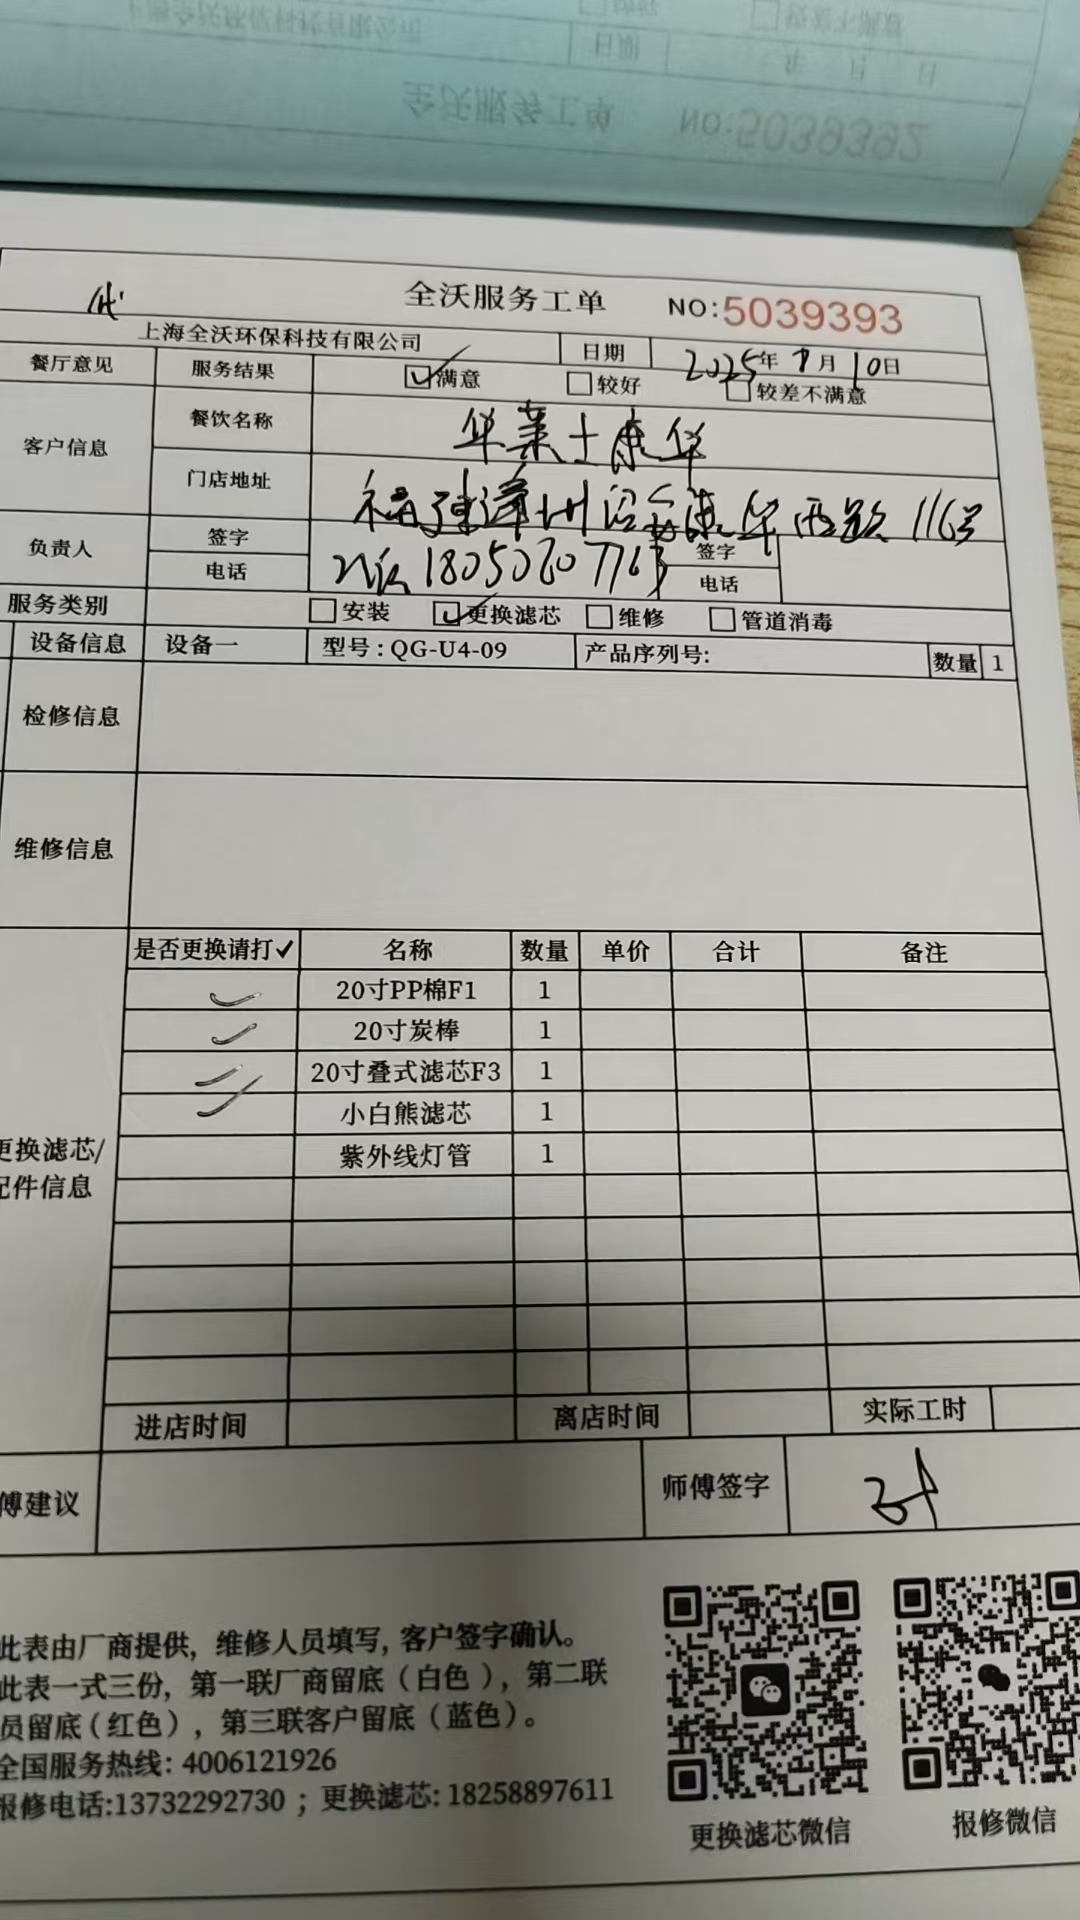 全沃服务工单 NO:5039392
全沃服务工单 NO:5039393
上海全沃环保科技有限公司 日期 2025年 月 10日
餐厅意见 服务结果 满意 较好 较差不满意
客户信息 餐饮名称 华莱士康华
门店地址 福建漳州诏安康华西路116号
负责人 签字 签字
电话 电话
服务类别 安装 更换滤芯 维修 管道消毒
设备信息 设备一 型号:QG-U4-09 产品序列号: 数量 1
检修信息
维修信息
是否更换请打✓ 名称 数量 单价 合计 备注
20寸PP棉F1 1
20寸炭棒 1
20寸叠式滤芯F3 1
小白熊滤芯 1
更换滤芯/ 紫外线灯管 1
配件信息
进店时间 离店时间 实际工时
傅建议 师傅签字
此表由厂商提供,维修人员填写,客户签字确认。
此表一式三份,第一联厂商留底(白色),第二联
员留底(红色),第三联客户留底(蓝色)。
全国服务热线:4006121926
报修电话:13732292730;更换滤芯:18258897611
更换滤芯微信 报修微信